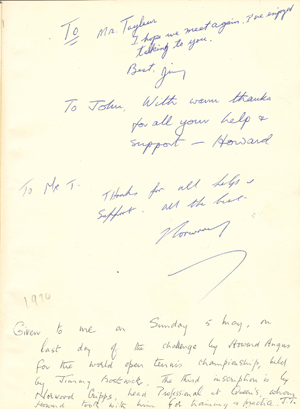 To Mr Tayleur
I hope we meet again. I've enjoyed
talking to you.
Best, Jimmy
To John, With warm thanks
for all your help &
support - Howard
To Mr T.
Thanks for all help &
support. all the best.
Norwood
1970
Given to me on Sunday 5 May, on
last day of the challenge by Howard Angus
for the world open tennis championship, held
by Jimmy Bostwick. The third inscription is by
Norwood Cripps, head Professional at Queen's, whom
Howard took with him for training & practice. J.T.